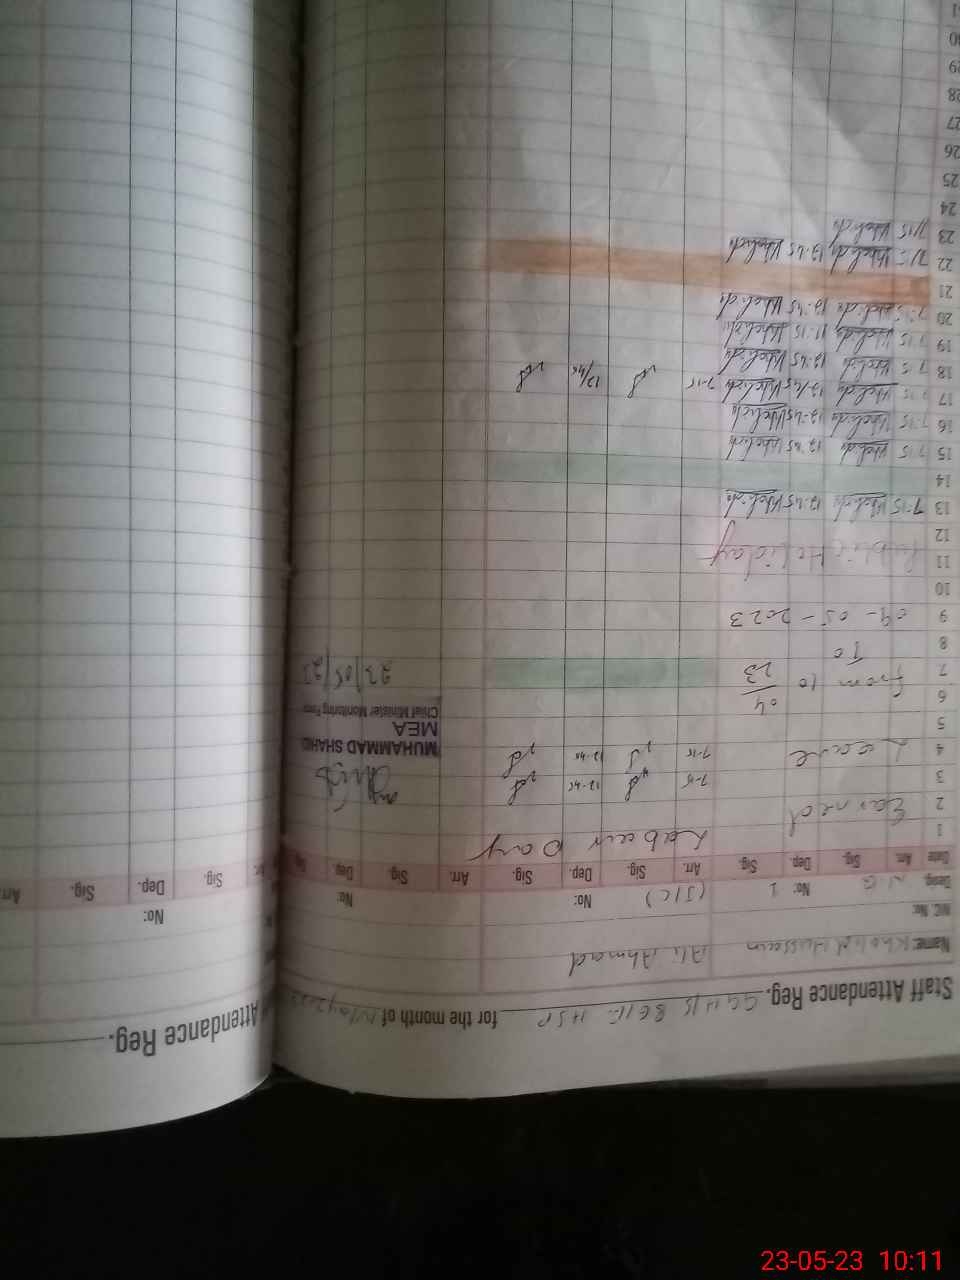 Staff Attendance Reg. for the month of May 2023
Name: Khalid Hussain Ali Ahmad
NIC. No:
Desig. N.Q No: 1 (S/C) No: No:
Date Arr. Sig. Dep. Sig. Arr. Sig. Dep. Sig. Arr. Sig. Dep.
1 Labour Day
2 Earned
3 7-15 12-45
4 Leave 7-15 12-45
5
6 04
7 From 10 23
8 To
9 09-05-2023
10
11 Public Holiday
12
13 7:15 Khalid 12-45 Khalid
14
15 7:15 Khalid 12:45 Khalid
16 7:15 Khalid 12-45 Khalid
17 7:15 Khalid 12-45 Khalid 7-15 12/45
18 7:15 Khalid 12-45 Khalid
19 7:15 Khalid Khalid
20 7:15 Khalid 12:45 Khalid
21
22 7:15 Khalid 12-45 Khalid
23 7:15 Khalid
24
25
26
27
28
29
30
31
MUHAMMAD SHAHID
MEA
Chief Minister Monitoring Force
23/05/23
Attendance Reg.
No:
Sig. Dep. Sig. Arr.
23-05-23 10:11